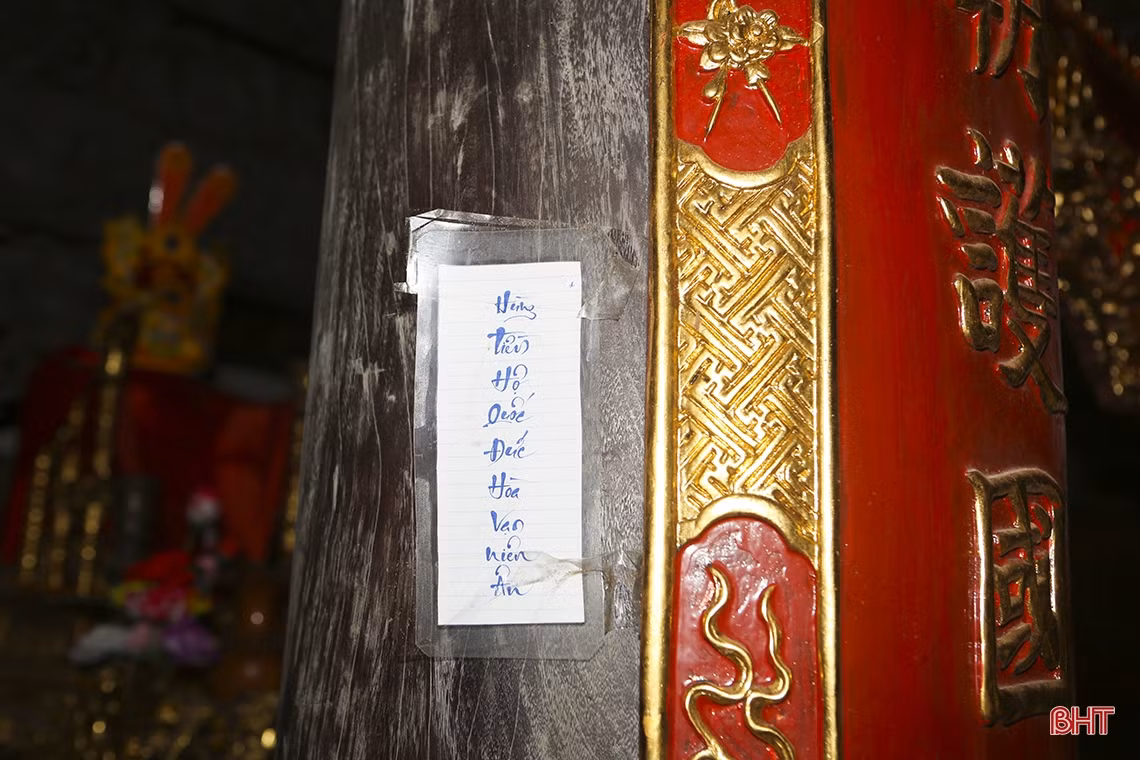 Hùng
Tiên
Hộ
Quốc
Đức
Hòa
Vạn
niên
Ân
護
國
BHT